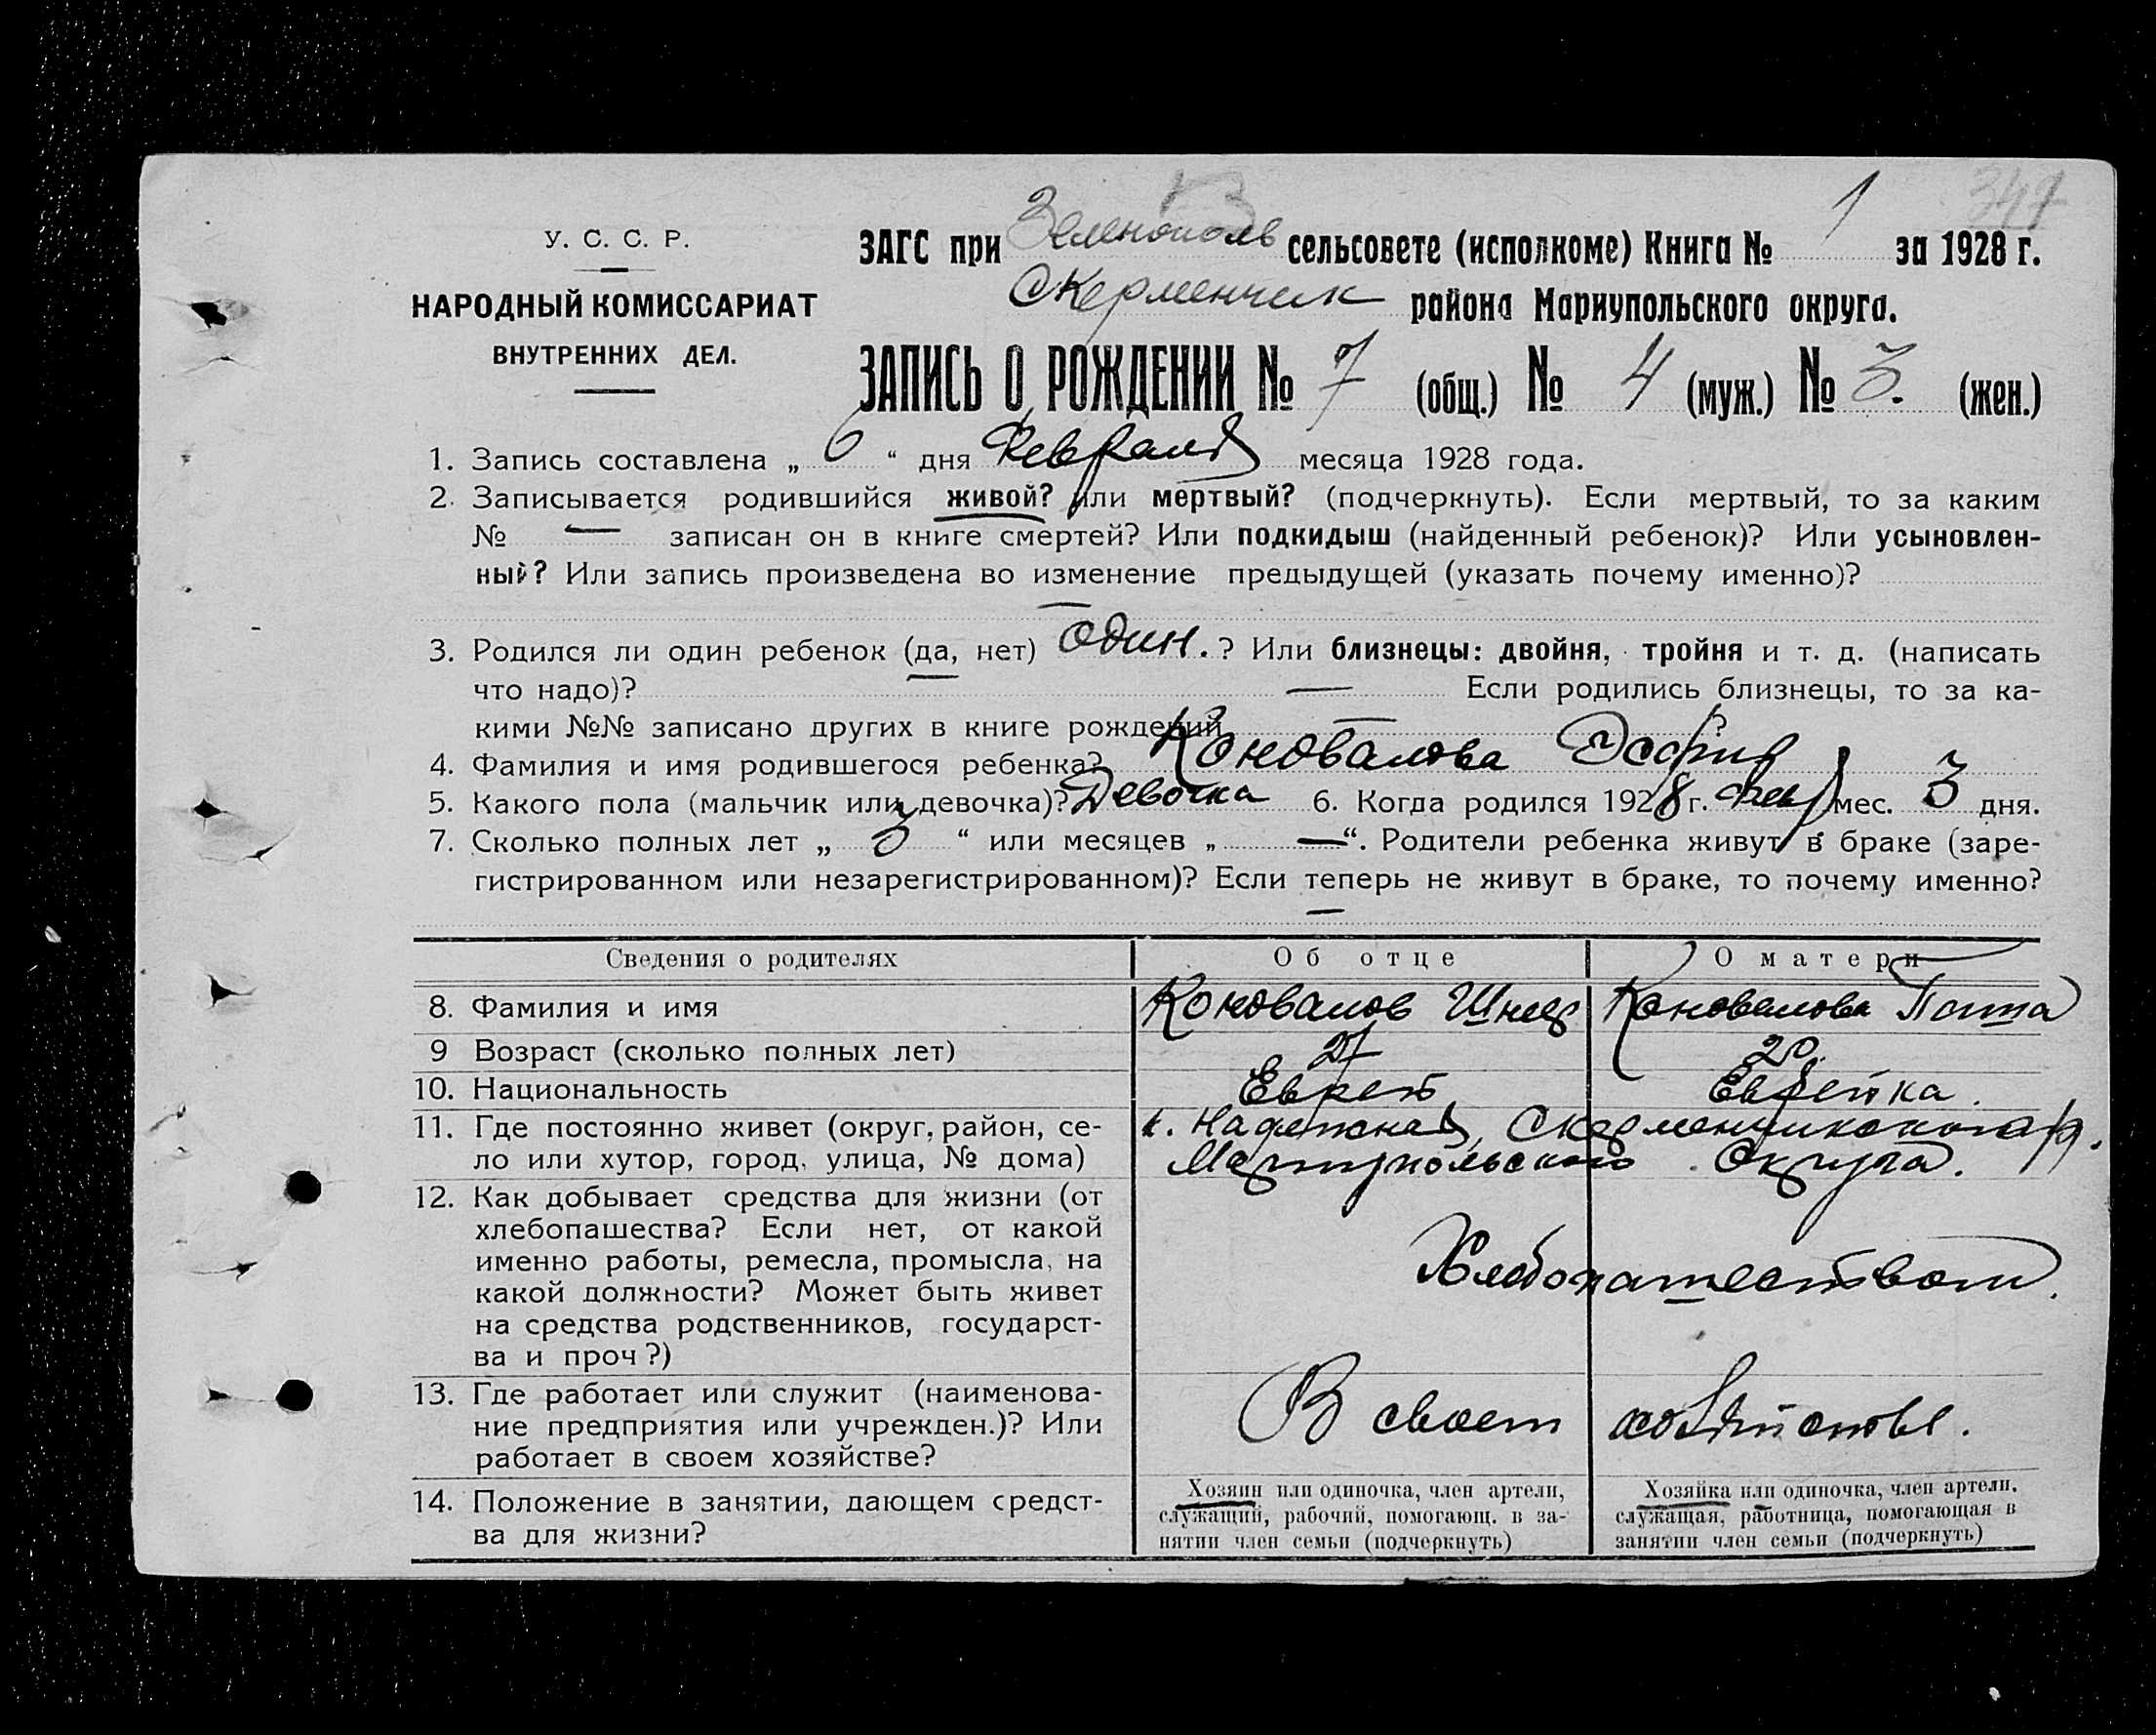 347
У. С. С. Р.
НАРОДНЫЙ КОМИССАРИАТ
ВНУТРЕННИХ ДЕЛ.
ЗАГС при Зеленополь сельсовете (исполкоме) Книга № 1 за 1928 г.
Скерменчик района Мариупольского округа.
ЗАПИСЬ О РОЖДЕНИИ № 7 (общ.) № 4 (муж.) № 3. (жен.)
1. Запись составлена „ 6 “ дня Февраля месяца 1928 года.
2. Записывается родившийся живой? или мертвый? (подчеркнуть). Если мертвый, то за каким
№ — записан он в книге смертей? Или подкидыш (найденный ребенок)? Или усыновлен-
ный? Или запись произведена во изменение предыдущей (указать почему именно)?
—
3. Родился ли один ребенок (да, нет) один. ? Или близнецы: двойня, тройня и т. д. (написать
что надо)? — Если родились близнецы, то за ка-
кими №№ записано других в книге рождений — ?
4. Фамилия и имя родившегося ребенка? Коновалова Эсфир
5. Какого пола (мальчик или девочка)? Девочка 6. Когда родился 1928 г. Февр мес. 3 дня.
7. Сколько полных лет „ 3 “ или месяцев „ — “. Родители ребенка живут в браке (заре-
гистрированном или незарегистрированном)? Если теперь не живут в браке, то почему именно?
—
Сведения о родителях Об отце О матери
8. Фамилия и имя Коновалов Шнеер Коновалова
9 Возраст (сколько полных лет) 27 20.
10. Национальность Еврей Еврейка.
11. Где постоянно живет (округ, район, се- к. Надежная, Скерменчикского р.
ло или хутор, город, улица, № дома) Мариупольского Округа.
12. Как добывает средства для жизни (от
хлебопашества? Если нет, от какой
именно работы, ремесла, промысла, на
какой должности? Может быть живет
на средства родственников, государст-
ва и проч?)
Хлебопашеством.
13. Где работает или служит (наименова-
ние предприятия или учрежден.)? Или
работает в своем хозяйстве?
В своем хозяйстве.
14. Положение в занятии, дающем средст-
ва для жизни?
Хозяин или одиночка, член артели,
служащий, рабочий, помогающ. в за-
нятии член семьи (подчеркнуть)
Хозяйка или одиночка, член артели,
служащая, работница, помогающая в
занятии член семьи (подчеркнуть)